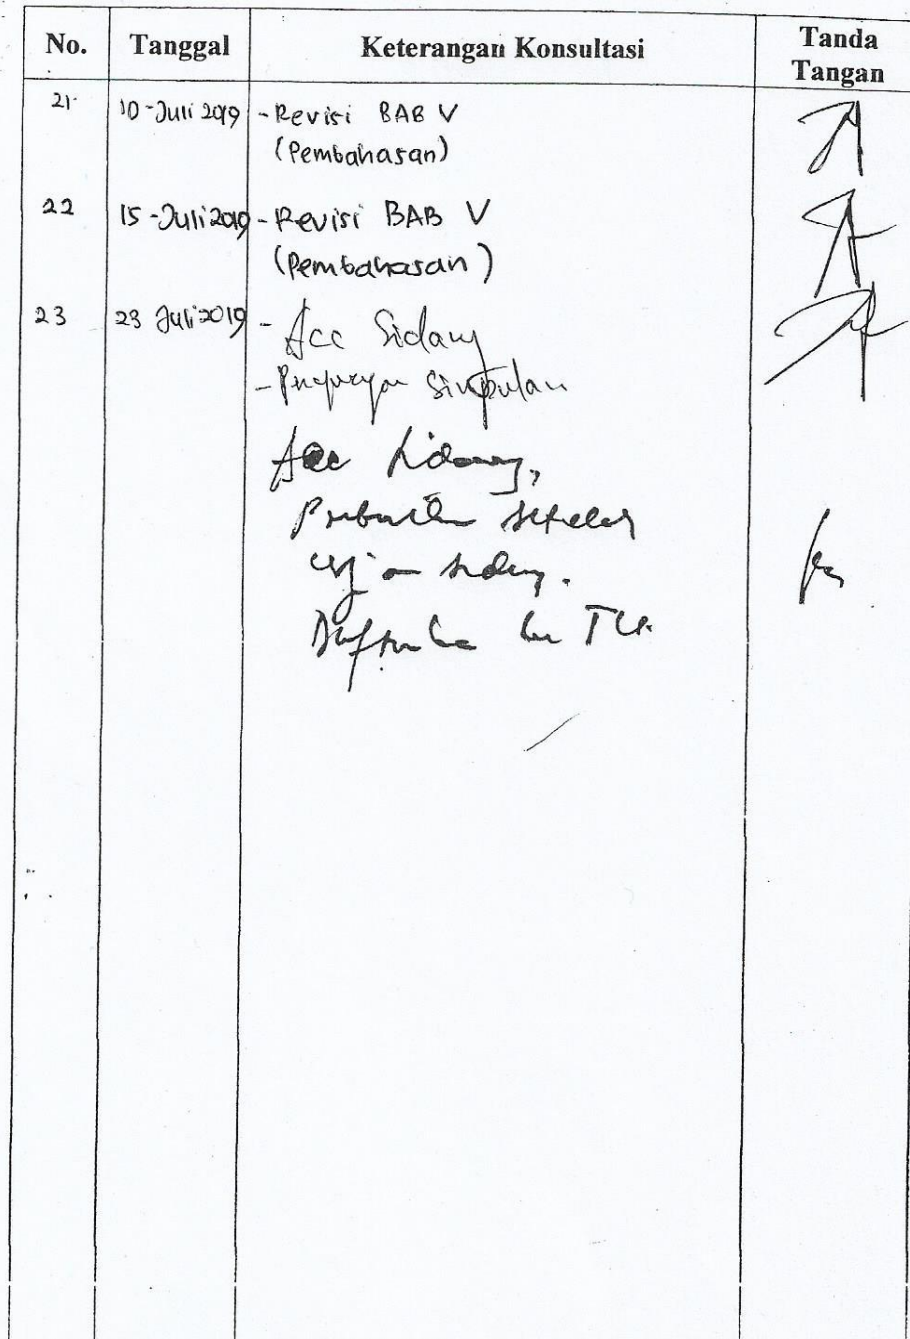 No. Tanggal Keterangan Konsultasi Tanda Tangan
21 10-Juli 2019 - Revisi BAB V
(Pembahasan)
22 15-Juli 2019 - Revisi BAB V
(Pembahasan)
23 23 Juli 2019 - Acc Sidang
- Simpulan
Acc Sidang,
setelah
ujian sidang.
ke TU.